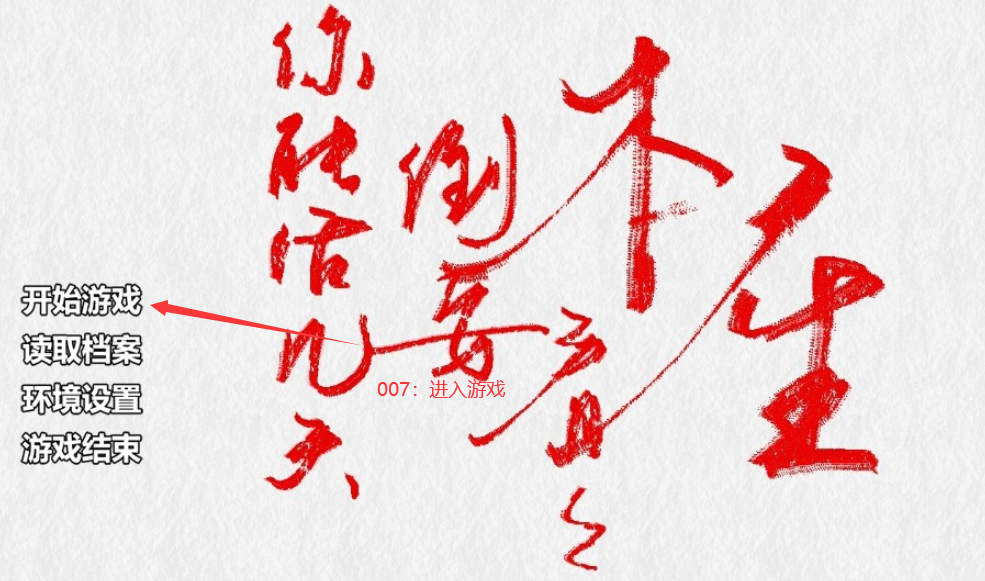 本座
倒要看看
你能活几天
开始游戏
读取档案
环境设置
游戏结束
007：进入游戏